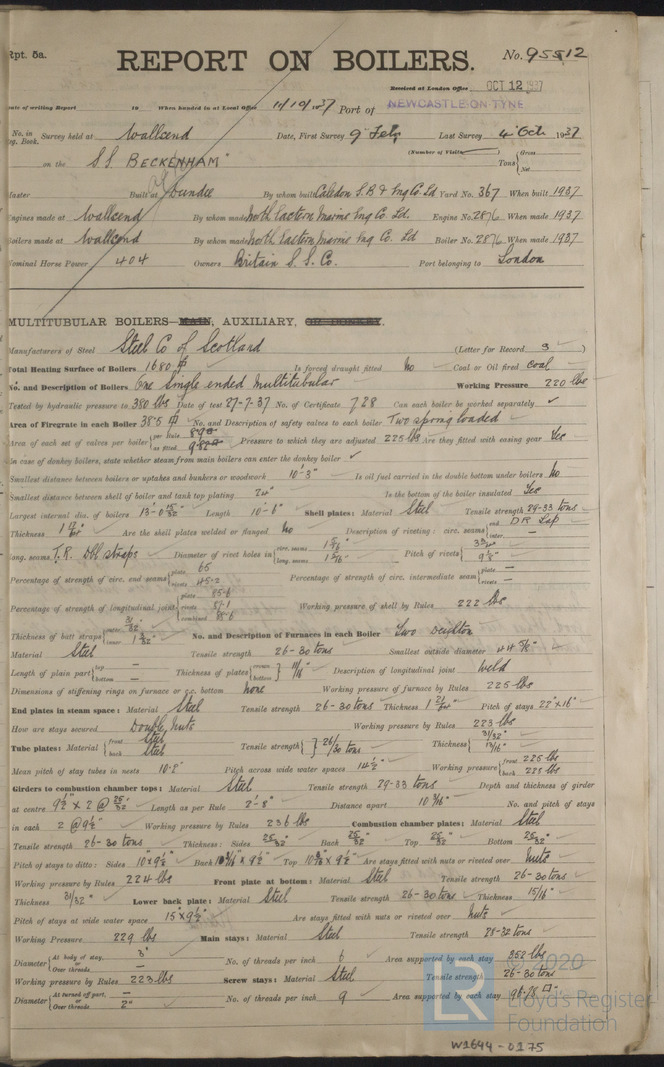 Rpt. 5a.
REPORT ON BOILERS.
No. 95512
Received at London Office OCT 12 1937
Date of writing Report 19 When handed in at Local Office 11/10/37 Port of NEWCASTLE-ON-TYNE
No. in Reg. Book. Survey held at Wallsend Date, First Survey 9 Feb, Last Survey 4 Oct 1937
(Number of Visits )
on the S.S. BECKENHAM" Tons { Gross Net
Master Built at Dundee By whom built Caledon S.B & Eng Co. Ld Yard No. 367 When built 1937
Engines made at Wallsend By whom made North Eastern Marine Eng Co. Ld. Engine No. 2876 When made 1937
Boilers made at Wallsend By whom made North Eastern Marine Eng Co. Ld Boiler No. 2876 When made 1937
Nominal Horse Power 404 Owners Britain S.S. Co. Port belonging to London
MULTITUBULAR BOILERS—MAIN, AUXILIARY, OR DONKEY.
Manufacturers of Steel Steel Co of Scotland (Letter for Record S )
Total Heating Surface of Boilers 1680 Is forced draught fitted No Coal or Oil fired coal
No. and Description of Boilers One Single ended multitubular Working Pressure 220 lbs
Tested by hydraulic pressure to 380 lbs Date of test 27-7-37 No. of Certificate 728 Can each boiler be worked separately ✓
Area of Firegrate in each Boiler 38.5 No. and Description of safety valves to each boiler Two spring loaded
Area of each set of valves per boiler { per Rule as fitted 9.82 Pressure to which they are adjusted 225 lbs Are they fitted with easing gear Yes
In case of donkey boilers, state whether steam from main boilers can enter the donkey boiler ✓
Smallest distance between boilers or uptakes and bunkers or woodwork 10'-3" Is oil fuel carried in the double bottom under boilers No
Smallest distance between shell of boiler and tank top plating 24" Is the bottom of the boiler insulated Yes
Largest internal dia. of boilers Length 10'-6" Shell plates: Material Steel Tensile strength 29-33 tons
Thickness Are the shell plates welded or flanged No Description of riveting: circ. seams { end D R Lap inter —
long. seams T.R. Dbl straps Diameter of rivet holes in { circ. seams long. seams Pitch of rivets { 9 1/8"
Percentage of strength of circ. end seams { plate 65 rivets 45.2 Percentage of strength of circ. intermediate seam { plate — rivets —
Percentage of strength of longitudinal joint { plate 85.6 rivets combined Working pressure of shell by Rules 222 lbs
Thickness of butt straps { outer 31/32" inner No. and Description of Furnaces in each Boiler Two Deighton
Material Steel Tensile strength 26-30 tons Smallest outside diameter
Length of plain part { top — bottom — Thickness of plates { crown bottom } 11/16" Description of longitudinal joint Weld
Dimensions of stiffening rings on furnace or c.c. bottom None Working pressure of furnace by Rules 225 lbs
End plates in steam space: Material Steel Tensile strength 26-30 tons Thickness Pitch of stays 22" x 16"
How are stays secured Double Nuts Working pressure by Rules 223 lbs
Tube plates: Material { front Steel back Steel Tensile strength { } 26/30 tons Thickness { 31/32" 13/16"
Mean pitch of stay tubes in nests 10.2" Pitch across wide water spaces 14 1/2" Working pressure { front 225 lbs back 225 lbs
Girders to combustion chamber tops: Material Steel Tensile strength 29-33 tons Depth and thickness of girder
at centre 9 1/2" x 2 @ 25/32" Length as per Rule 2'-8" Distance apart 10 3/16" No. and pitch of stays
in each 2 @ 9 1/2" Working pressure by Rules 236 lbs Combustion chamber plates: Material Steel
Tensile strength 26-30 tons Thickness: Sides 25/32" Back 25/32" Top 25/32" Bottom 25/32"
Pitch of stays to ditto: Sides 10" x 9 1/2" Back 10 3/16" x 9 1/2" Top 10 3/16" x 9 1/2" Are stays fitted with nuts or riveted over Nuts
Working pressure by Rules 224 lbs Front plate at bottom: Material Steel Tensile strength 26-30 tons
Thickness 31/32" Lower back plate: Material Steel Tensile strength 26-30 tons Thickness 15/16"
Pitch of stays at wide water space 15" x 9 1/2" Are stays fitted with nuts or riveted over Nuts
Working Pressure 229 lbs Main stays: Material Steel Tensile strength 28-32 tons
Diameter { At body of stay, 3" or Over threads — No. of threads per inch 6 Area supported by each stay 352
Working pressure by Rules 223 lbs Screw stays: Material Steel Tensile strength 26-30 tons
Diameter { At turned off part, — or Over threads 2" No. of threads per inch 9 Area supported by each stay
© 2020
LR
Lloyd's Register
Foundation
W1644-0175